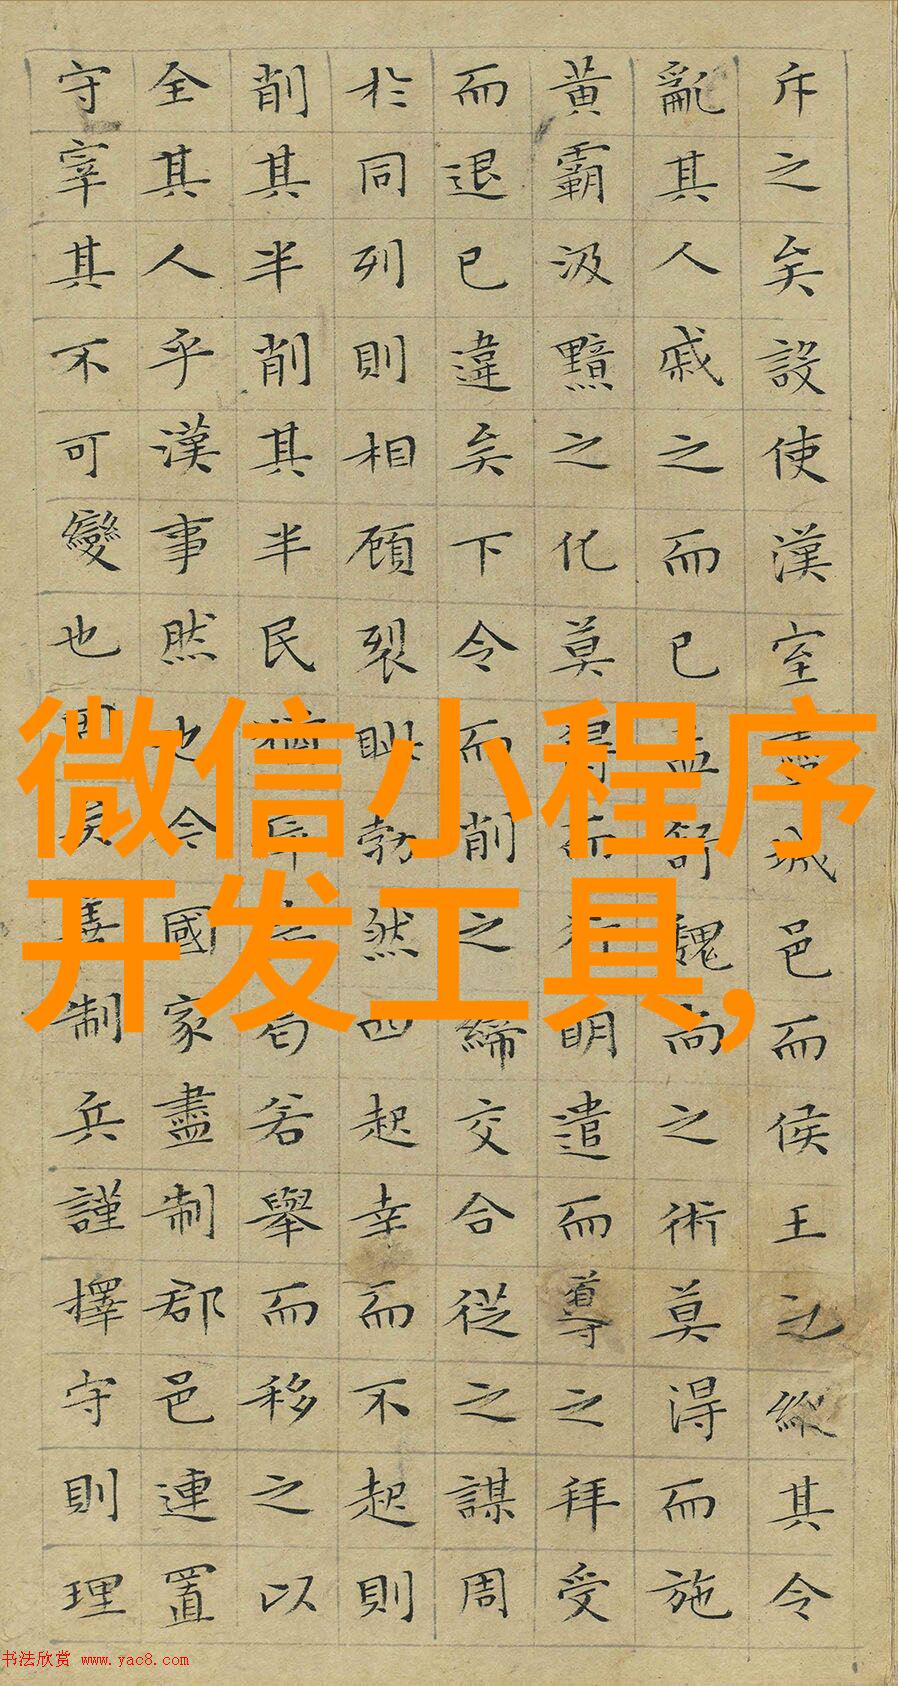 斥之矣設使漢室盡城邑而侯王之縱其令
亂其人戚之而已孟舒魏尚之術莫得而施
黄霸汲黯之化莫得而行明遣而導之拜受
而退已違矣下令而削之締交合從之謀周
於同列則相顧裂眦勃然而起幸而不起則
削其半削其半民猶瘁矣曷若舉而移之以
全其人乎漢事然也今國家盡制郡邑連置
守宰其不可變也固矣善制兵謹擇守則理
微信小程序
开发工具,
书法欣赏 www.yac8.com